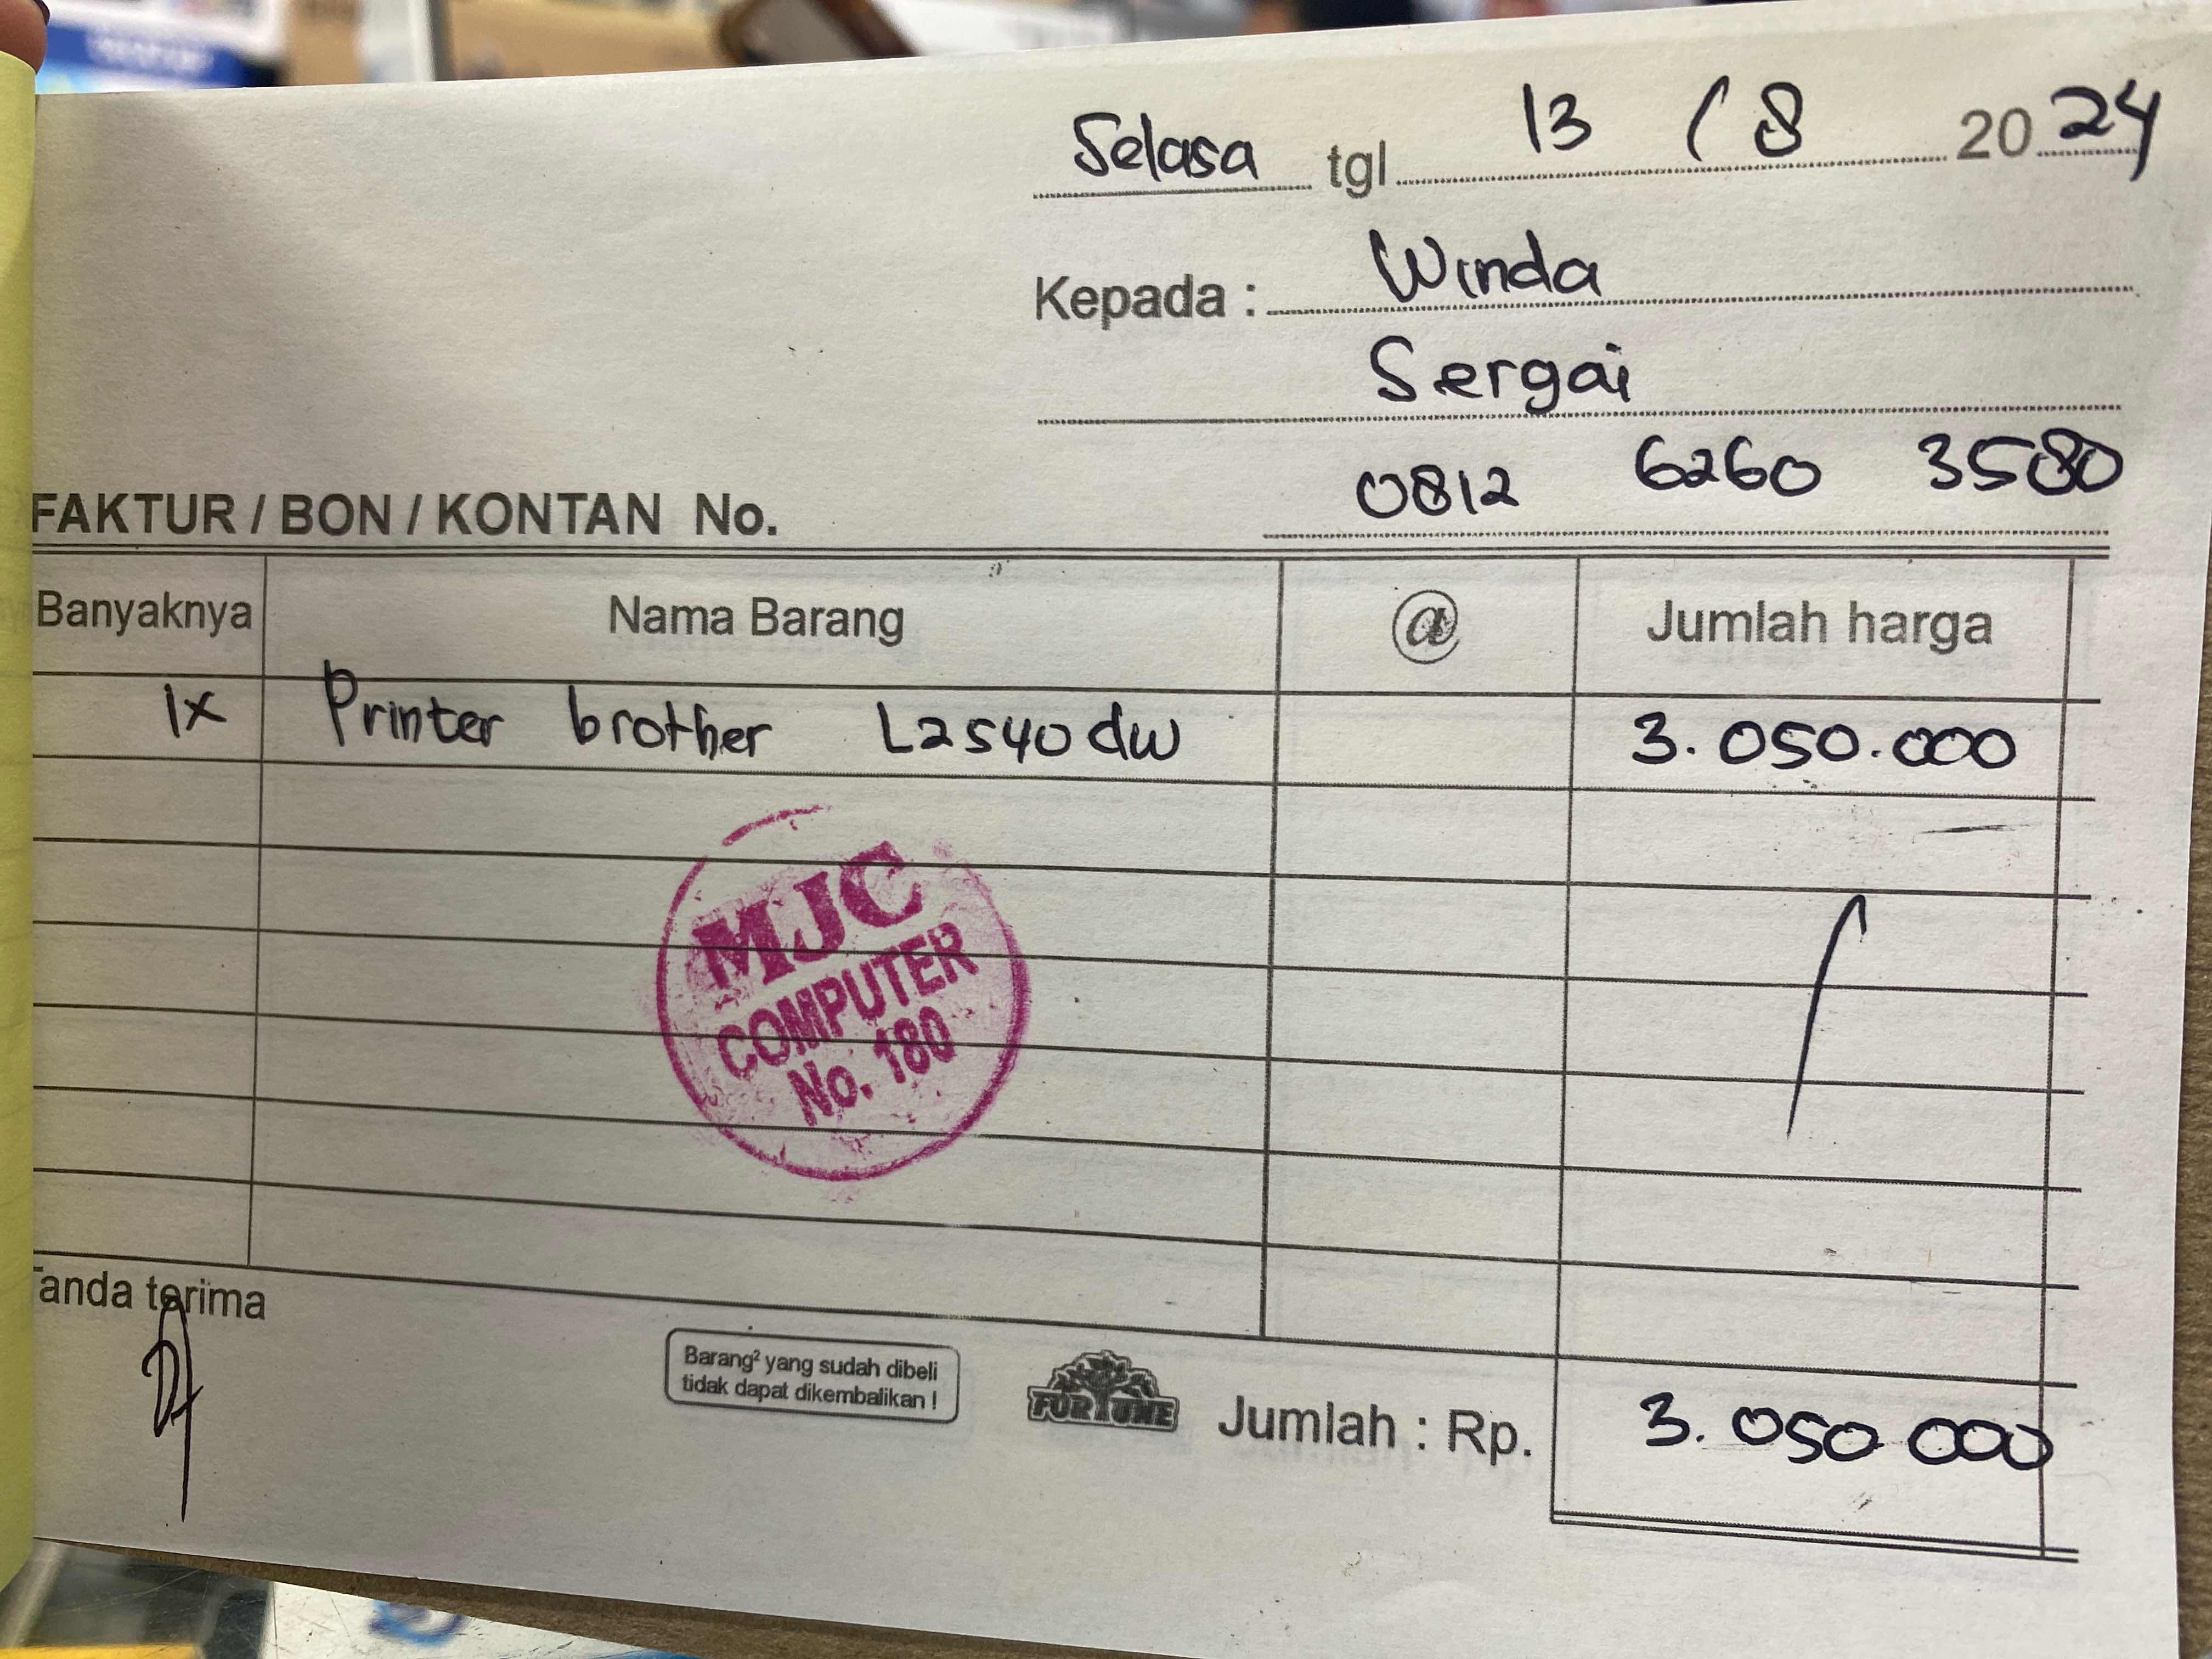 Selasa tgl 13 / 8 2024
Kepada : Winda
Sergai
0812 6260 3580
FAKTUR / BON / KONTAN No.
Banyaknya Nama Barang @ Jumlah harga
1x Printer brother L2540dw 3.050.000
MJC
COMPUTER
No. 180
Tanda terima
Barang² yang sudah dibeli
tidak dapat dikembalikan !
FORTUNE
Jumlah : Rp. 3.050 000